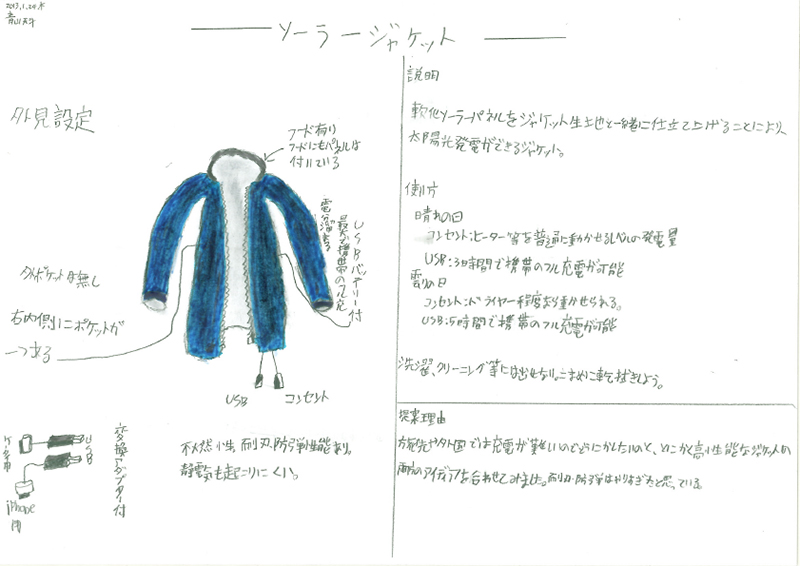 2013.1.24木
ソーラージャケット
外見設定
フード有り
フードにもパネルは
付いている
USBバッテリー付
最大で携帯のフル充
電分溜まる
外ポケットは無し
右内側にポケットが
一つある
USB
コンセント
変換アダプター付
USB
ケータイ用
iPhone
用
不燃性、耐刃、防弾性能あり。
静電気も起こりにくい。
説明
軟化ソーラーパネルをジャケット生土地と一緒に仕立て上げることにより、
太陽光発電ができるジャケット。
使い方
晴れの日
コンセント:ヒーター等を普通に動かせるレベルの発電量
USB:3時間で携帯のフル充電が可能
曇りの日
コンセント:ドライヤー程度なら動かせられる。
USB:5時間で携帯のフル充電が可能
洗濯、クリーニング等には出せない。こまめに乾拭きしよう。
提案理由
旅先や外国では充電が難しいのでどうにかしたいのと、とにかく高性能なジャケットの
両方のアイディアを合わせてみました。耐刃・防弾はやりすぎたと思っている